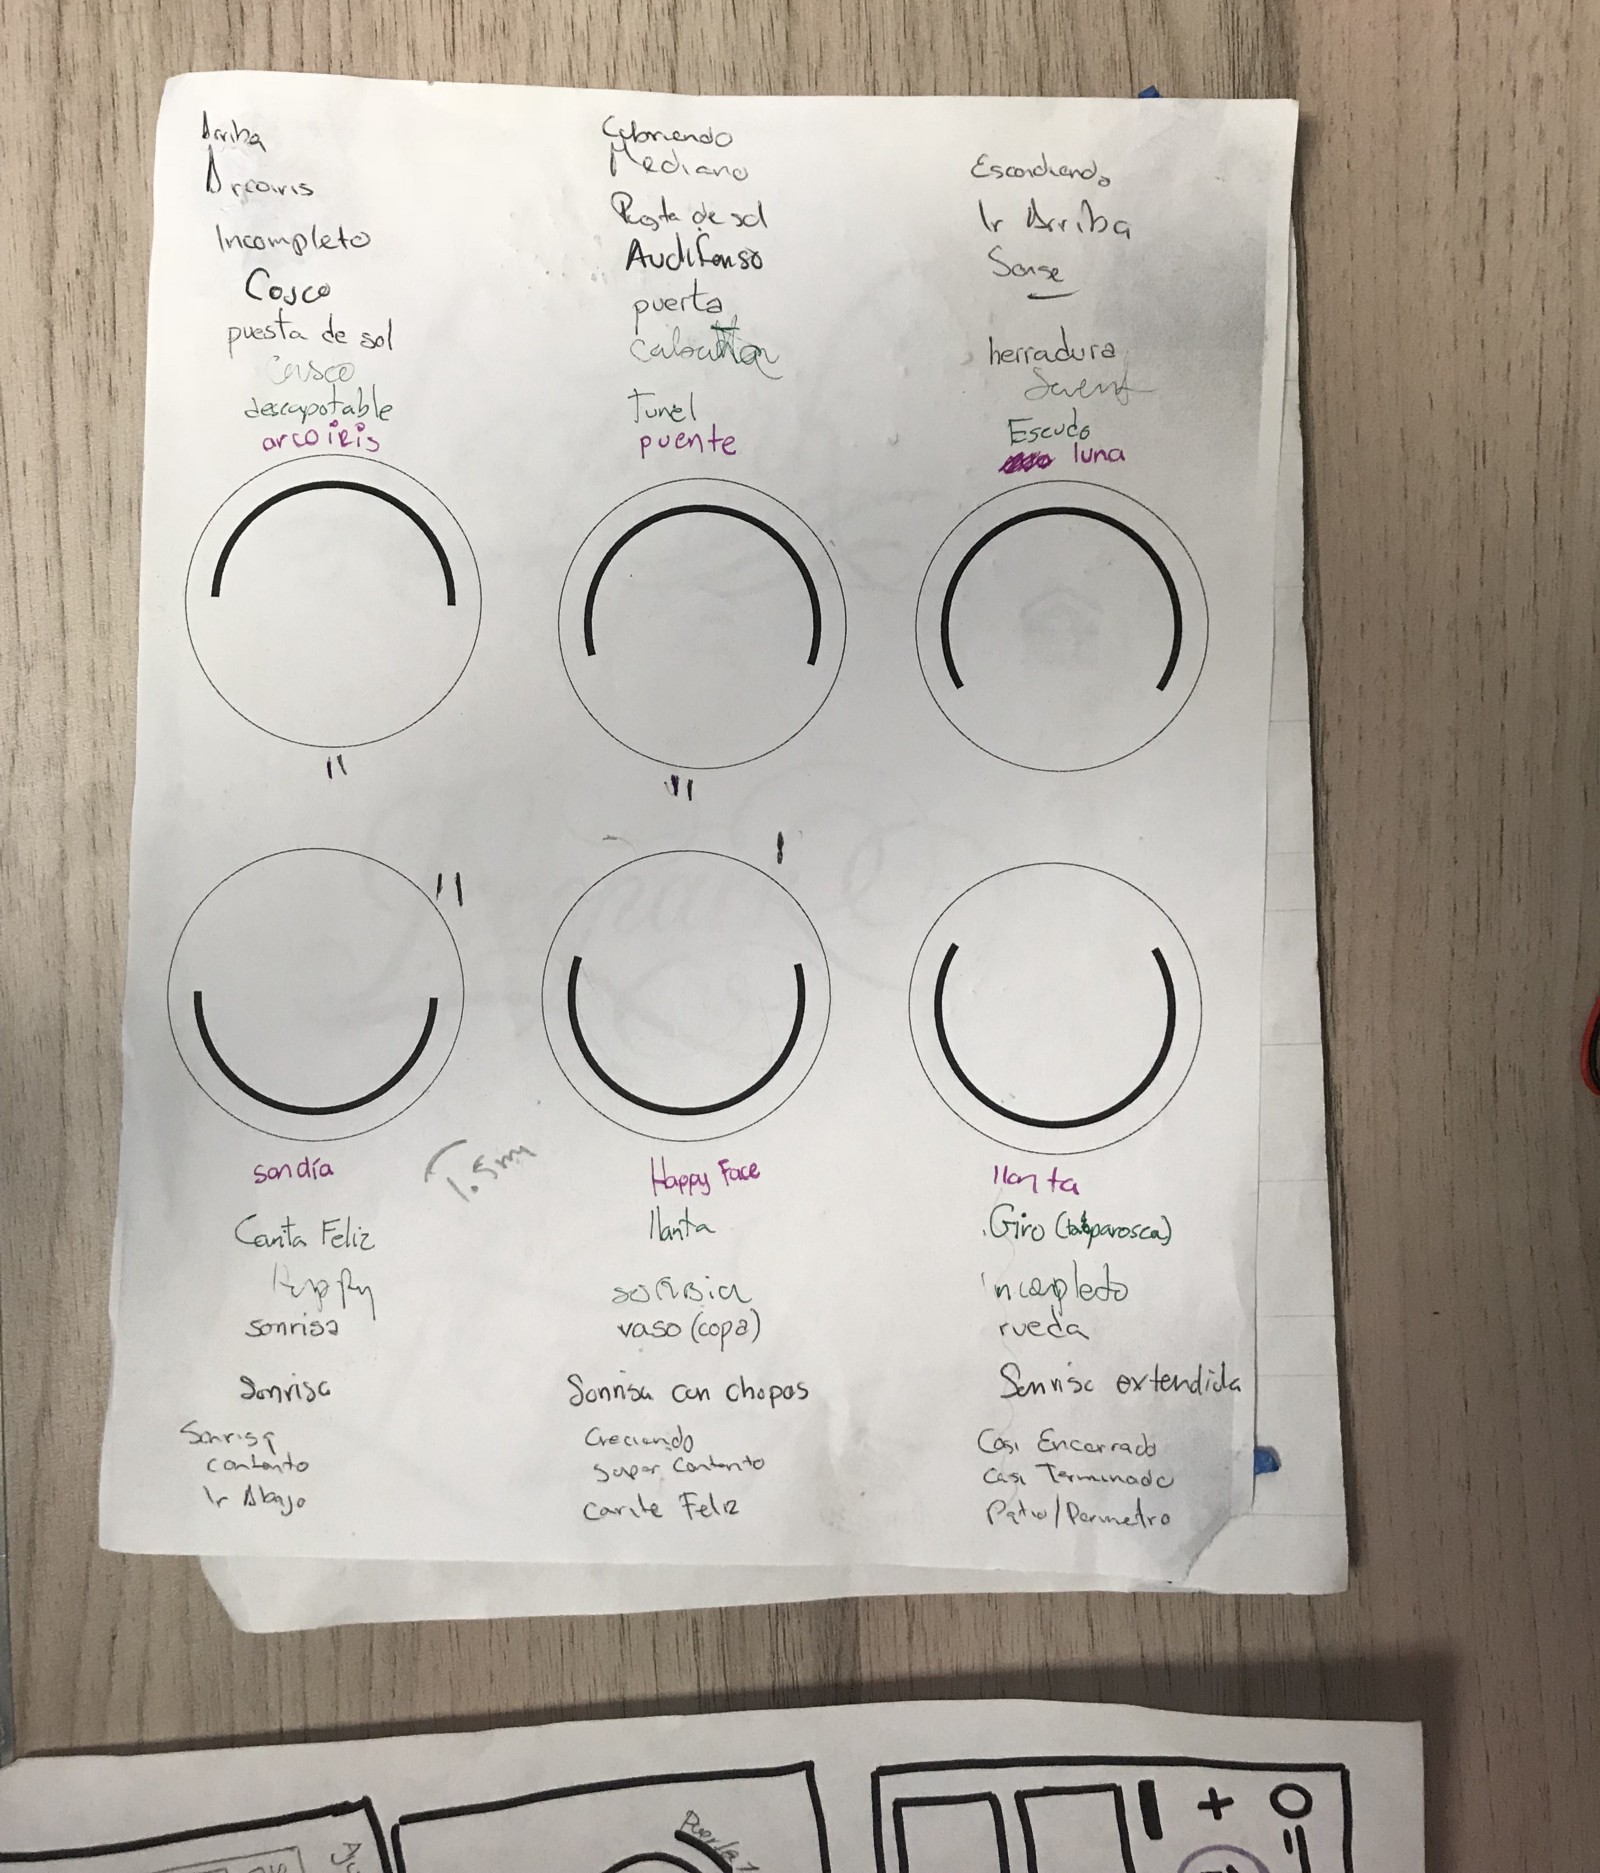 Arriba
Arcoiris
Incompleto
Casco
puesta de sol
Casco
descapotable
arcoiris
Cubriendo
Mediano
Puesta de sol
Audifonso
puerta
Tunel
puente
Escondiendo
Ir Arriba
herradura
Escudo
luna
sandía
Carita Feliz
Happy
sonrisa
Sonrisa
Sonrisa
contento
Ir Abajo
1.5m
Happy Face
llanta
vaso (copa)
Sonrisa con chapas
Creciendo
super contento
carite Feliz
llanta
Giro (taparosca)
incompleto
rueda
Sonrisa extendida
Casi Encerrado
Casi Terminado
Patio/Perimetro
Puerta 1
+